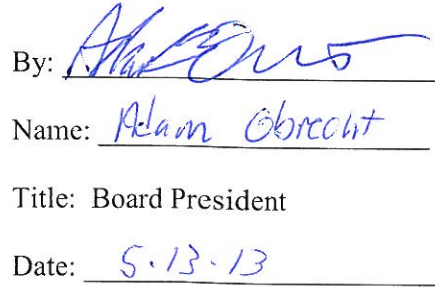 By:
Name: Adam Obrecht
Title: Board President
Date: 5.13.13